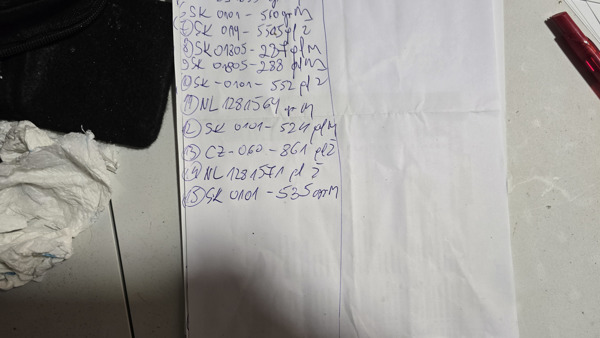 SK 0101 - 560 grM
7 SK 019 - 5545 pl Ž
8 SK 01805 - 237 pl M
9 SK 01805 - 288 pl M
10 SK - 0101 - 552 pl Ž
11 NL 1281564 gr M
12 SK 0101 - 524 pl M
13 CZ - 060 - 861 pl Ž
14 NL 1281571 pl Ž
15 SK 0101 - 535 grM